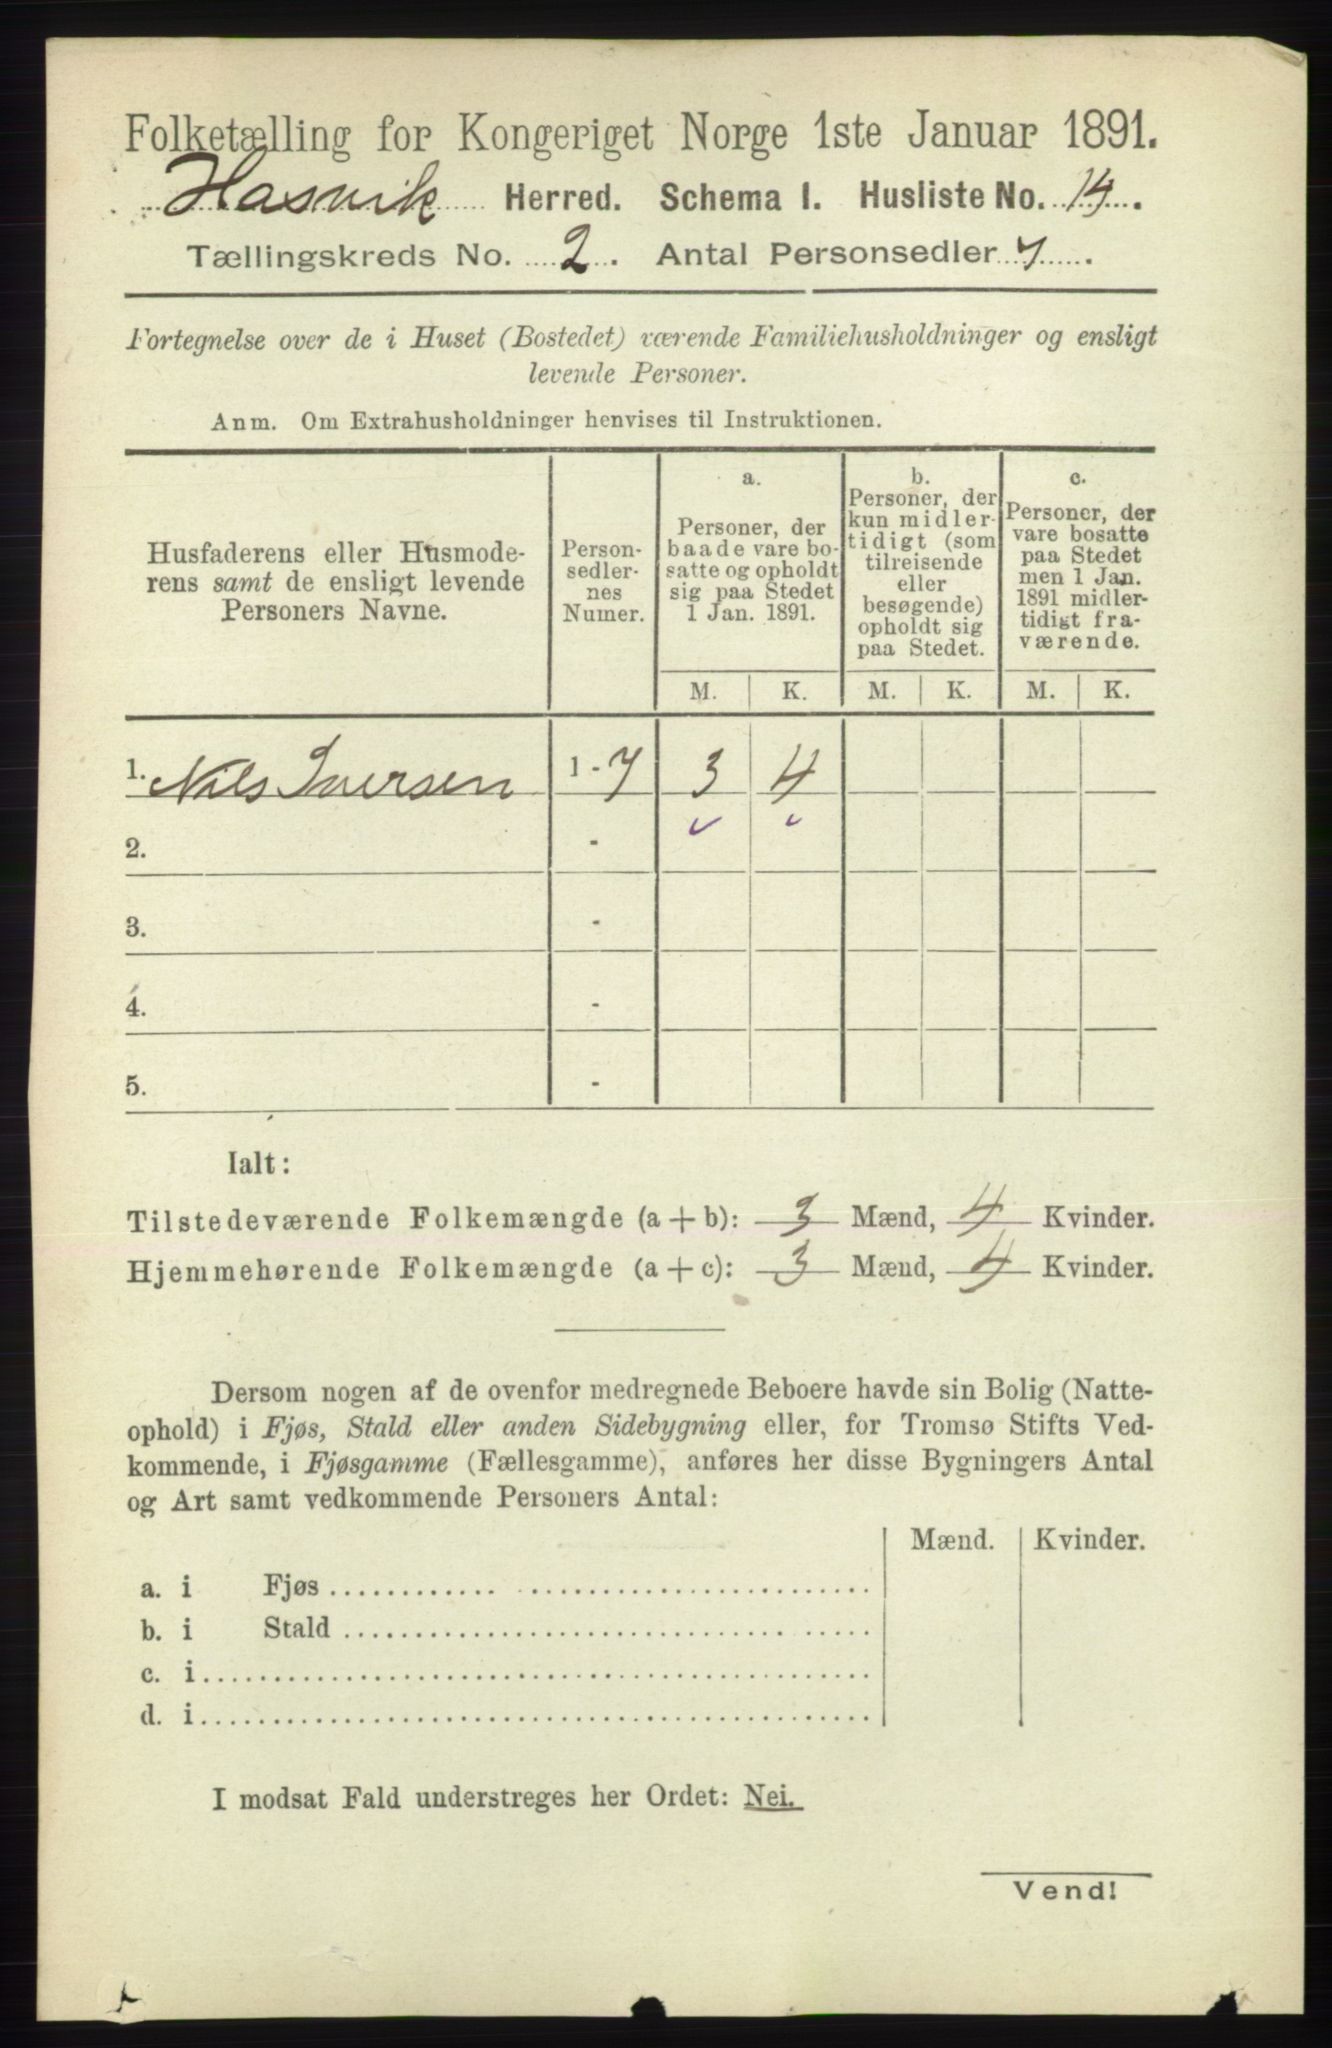 Folketælling for Kongeriget Norge 1ste Januar 1891.
Hasvik Herred. Schema I. Husliste No. 14.
Tællingskreds No. 2. Antal Personsedler 7.
Fortegnelse over de i Huset (Bostedet) værende Familiehusholdninger og ensligt
levende Personer.
Anm. Om Extrahusholdninger henvises til Instruktionen.
Husfaderens eller Husmode-
rens samt de ensligt levende
Personers Navne.
Person-
sedler-
nes
Numer.
a.
Personer, der
baade vare bo-
satte og opholdt
sig paa Stedet
1 Jan. 1891.
b.
Personer, der
kun midler-
tidigt (som
tilreisende
eller
besøgende)
opholdt sig
paa Stedet.
c.
Personer, der
vare bosatte
paa Stedet
men 1 Jan.
1891 midler-
tidigt fra-
værende.
M. K. M. K. M. K.
1. Nils Iversen 1 - 7 3 4
2. -
3. -
4. -
5. -
Ialt:
Tilstedeværende Folkemængde (a + b): 3 Mænd, 4 Kvinder.
Hjemmehørende Folkemængde (a + c): 3 Mænd, 4 Kvinder.
Dersom nogen af de ovenfor medregnede Beboere havde sin Bolig (Natte-
ophold) i Fjøs, Stald eller anden Sidebygning eller, for Tromsø Stifts Ved-
kommende, i Fjøsgamme (Fællesgamme), anføres her disse Bygningers Antal
og Art samt vedkommende Personers Antal:
Mænd. Kvinder.
a. i Fjøs
b. i Stald
c. i
d. i
I modsat Fald understreges her Ordet: Nei.
Vend!